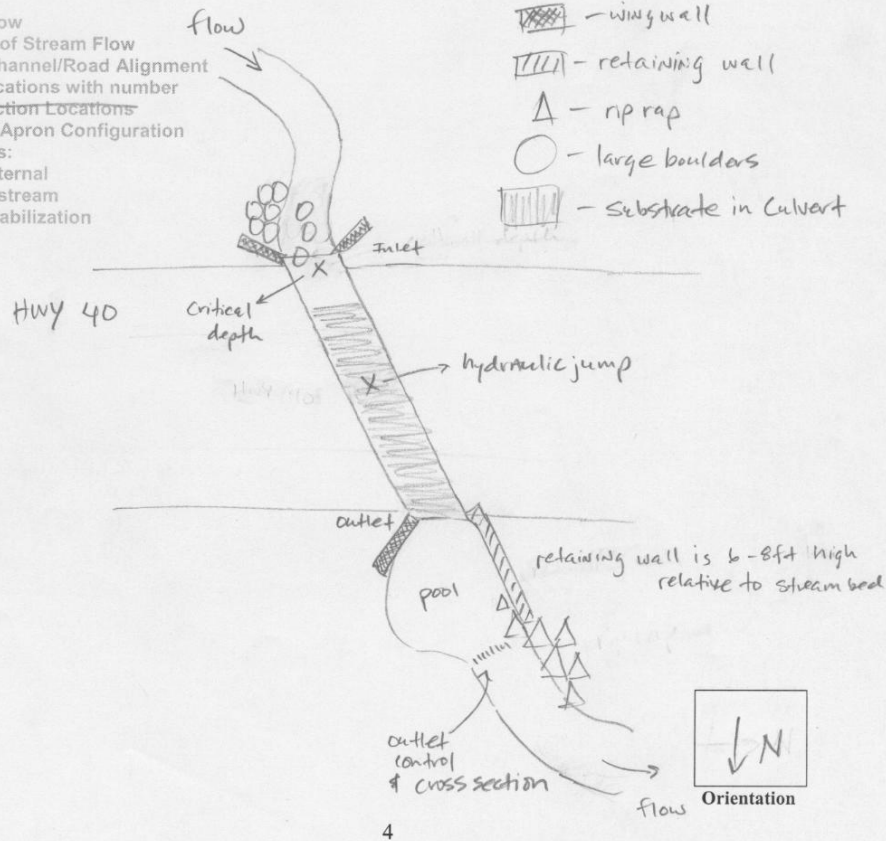 ow
of Stream Flow
hannel/Road Alignment
cations with number
ction Locations
Apron Configuration
s:
ternal
stream
abilization
flow
- wingwall
- retaining wall
- rip rap
- large boulders
- Substrate in Culvert
Inlet
HWY 40
Critical
depth
hydraulic jump
outlet
retaining wall is 6-8ft high
relative to stream bed
pool
outlet
control
& cross section
flow
N
Orientation
4